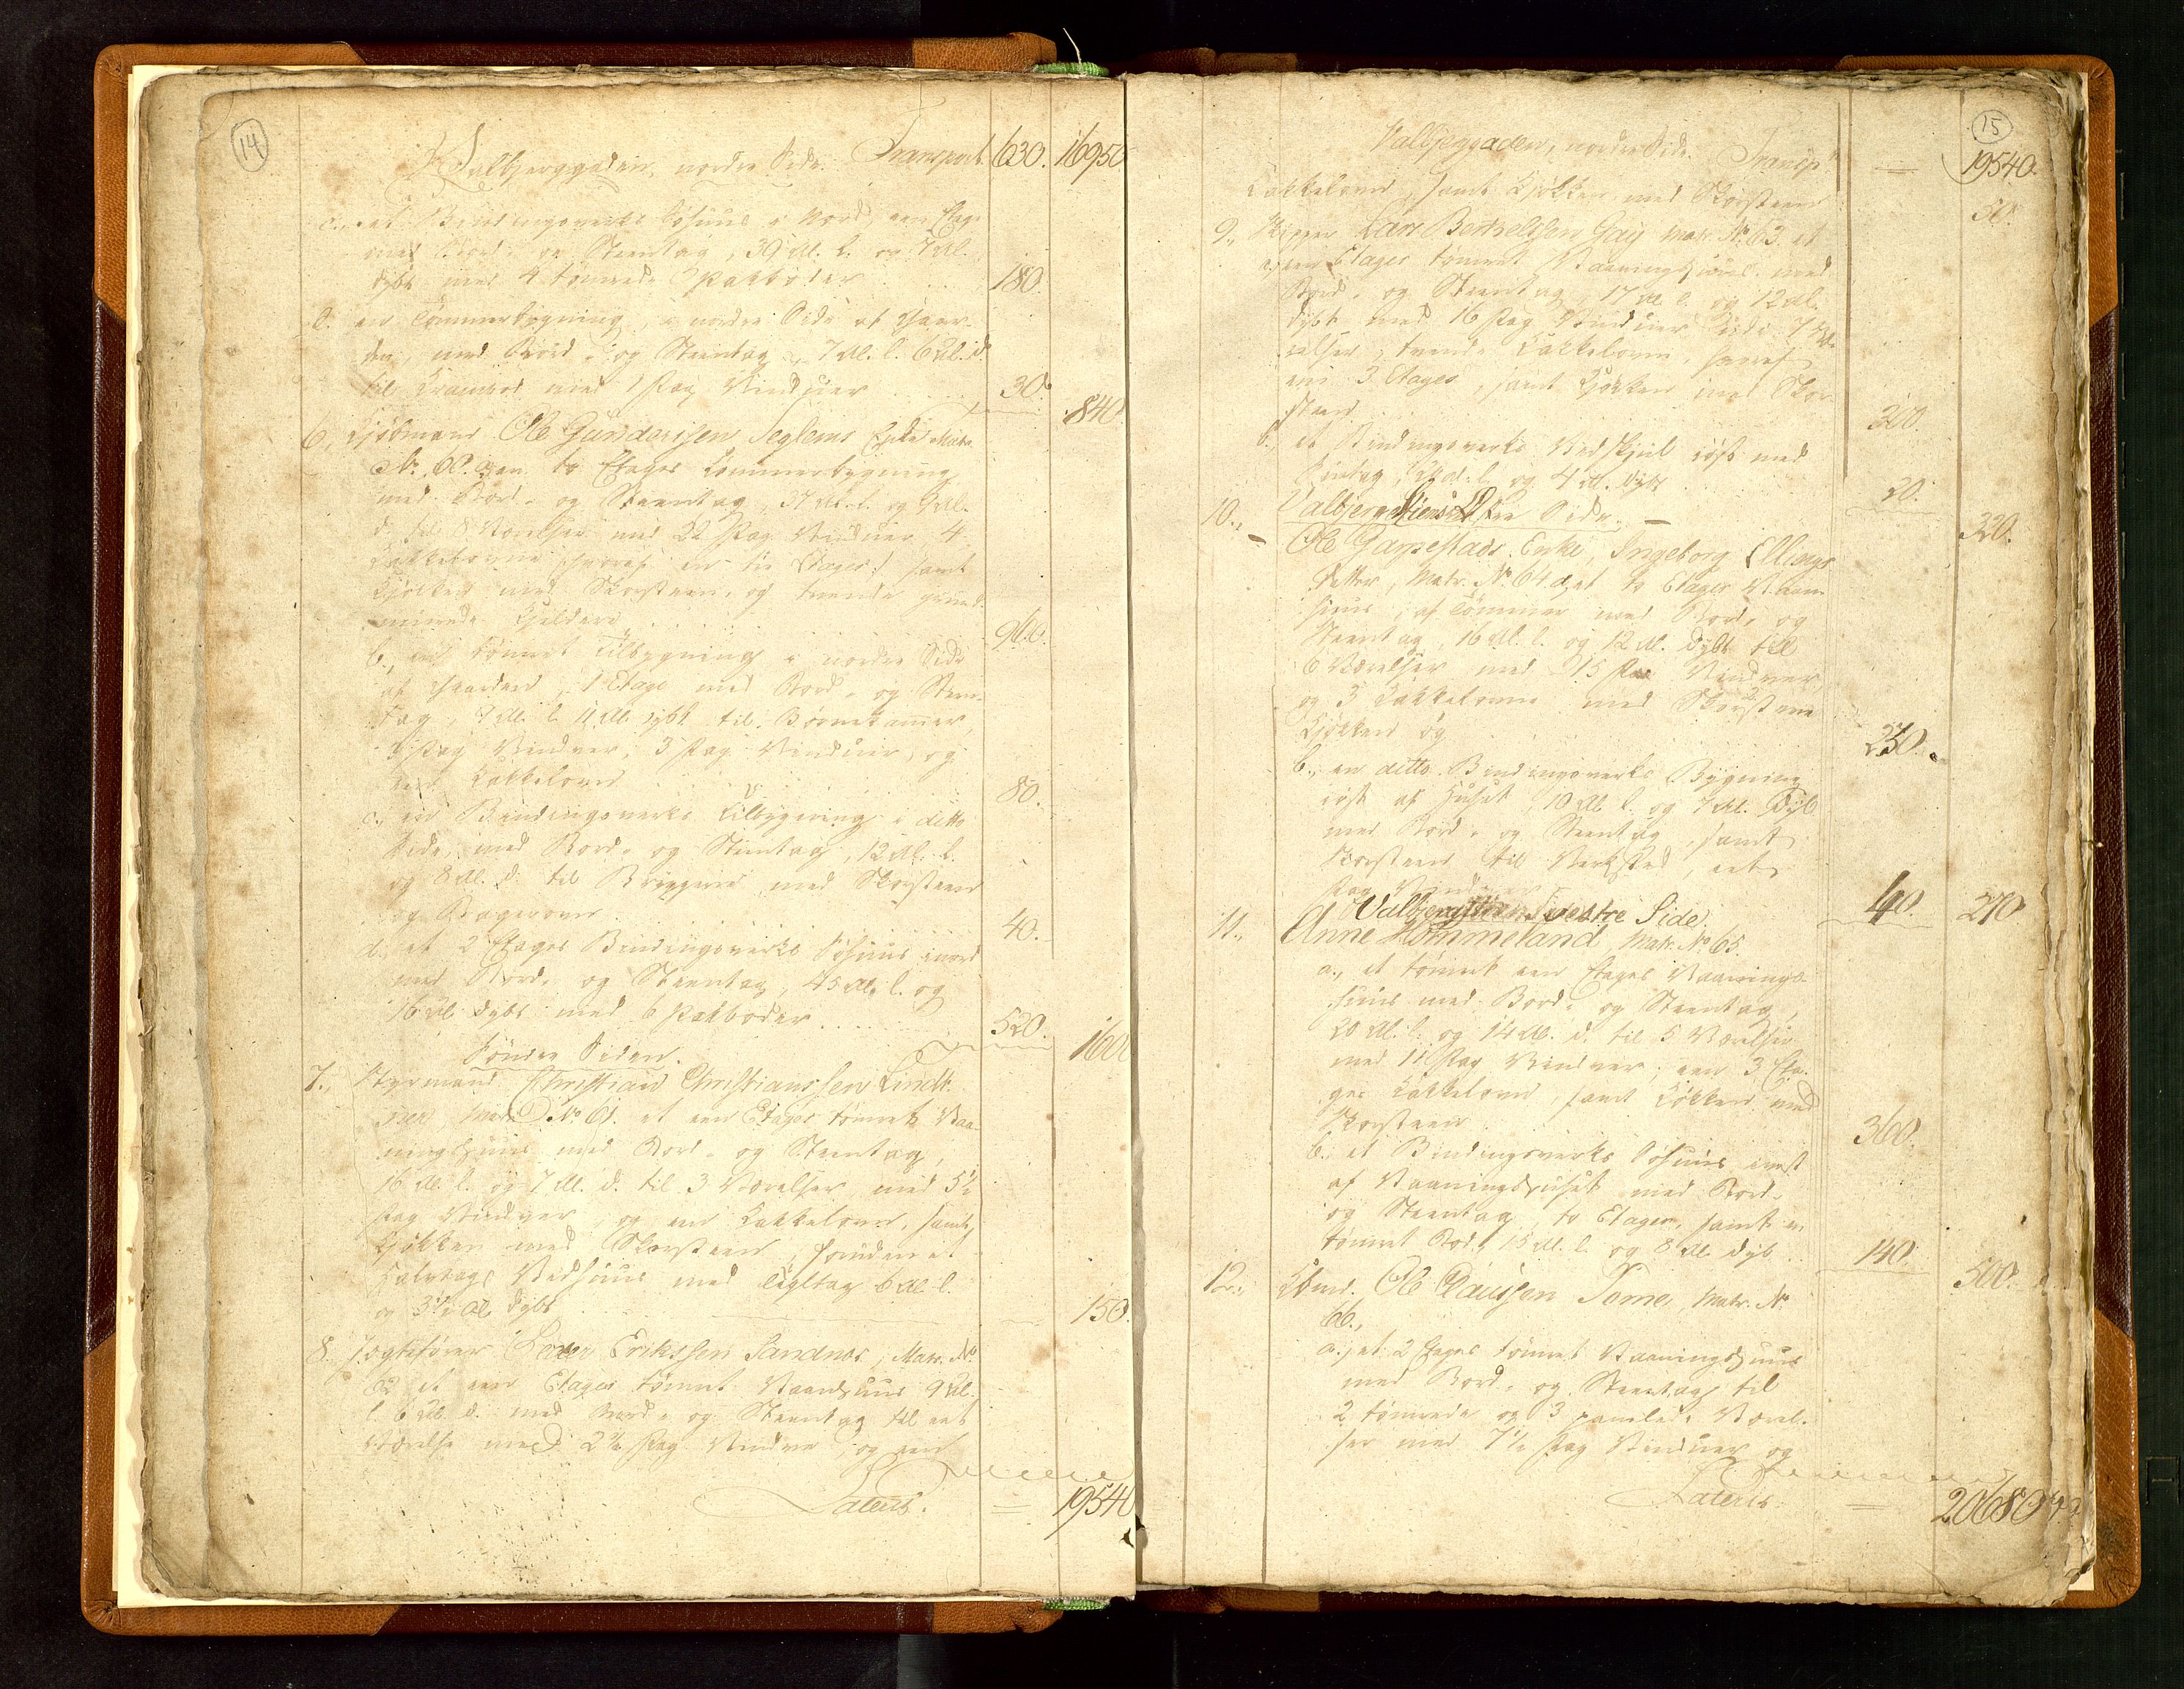 14
Valbjerggaden, nordre Side. Transport 630. 16950
c., et Bindingsverks Søhuus i Nord, een Etage
med Bord- og Steentag, 39 Al. l. og 7 Al.
dybt med 4 tømrede Pakboder 180.
d. en Tømmerbygning, i nordre Side af Gaar-
den, med Bord- og Steentag, 7 Al. l. 6 Al. d.
til Krambod med 1 Fag Vinduer 30.
840
6., Kjøbmand Ole Gundersen Seglems Enke Matr.
No. 60. a, en to Etages Tømmerbygning
med Bord- og Steentag, 37 Al. l. og 9 Al.
d. til 8 Værelser med 22 Fag Vinduer, 4
Kakkelovne hvoraf en tre Etages, samt
Kjøkken med Skorsteen, og tvende grund-
murede Kjeldere 960.
b., en tømret Tilbygning i nordre Side
af Gaarden, 1 Etage med Bord- og Steen-
tag, 7 Al. l. 11 Al. dybt til Børnekamer,
3 Fag Vinduer, og
een Kakkelovn 80.
c., en Bindingsverks Tilbygning i ditto
Side, med Bord- og Steentag, 12 Al. l.
og 8 Al. d. til Bryggeri med Skorsteen
og Bagerovn 40.
d., et 2 Etages Bindingsverks Søhuus i nord
med Bord- og Steentag, 45 Al. l. og
16 Al. dybt med 6 Pakboder 520.
160
Søndre Siden.
7., Styrmand Christian Christianssen Lindt-
ner, Matr. No. 61. et een Etages tømret Vaa-
ningshuus med Bord- og Steentag,
16 Al. l. og 7 Al. d. til 3 Værelser med 5½
Fag Vinduer, og en Kakkelovn, samt
Kjøkken med Skorsteen, foruden et
Halvtags Vedhuus med Tegltag 6 Al. l.
og 3½ Al. dybt 150.
8. Jagtefører Peder Erikssen Sandnæs, Matr. No.
62 et een Etages tømret Vaanhuus 9 Al.
l. 6 Al. d. med Bord- og Steentag til eet
Værelse med 2½ Fag Vinduer, og een
Lateris. = 19540
15
Valbjerggaden, nordre Side. Transp. = 19540.
Kakkelovn, samt Kjøkken med Skorsteen 50.
9., Skipper Lars Berthelssen Gay Matr. No. 63. et
Etages tømret Vaaningshuus med
Bord- og Steentag, 17 Al. l. og 12 Al.
dybt med 16 Fag Vinduer til 7 Væ-
relser, tvende Kakkelovne hvoraf
een 3 Etages, samt Kjøkken med Skor-
steen 300.
b. et Bindingsverks Vedskjul øst med
l. og 4 Al. dybt 20.
320.
10., Valbjergstien Østre Side.
Ole Garpestads Enke, Ingeborg Ellings
Datter, Matr. No. 64 a, et to Etages Vaan-
huus, af Tømmer med Bord- og
Steentag, 16 Al. l. og 12 Al. dybt til
6 Værelser med 15 Fag Vinduer,
og 3 Kakkelovne med Skorsteen
Kjøkken og 230.
b., en ditto Bindingsverks Bygning
øst af Huset, 10 Al. l. og 7 Al. dyb
med Bord- og Steentag, samt
Skorsteen til Verksted, eet
Fag Vinduer 40. 270
Valbjergstien Vestre Side.
11., Anne Hommeland, Matr. No. 65.
a., et tømret een Etages Vaanings-
huus med Bord- og Steentag,
20 Al. l. og 14 Al. d. til 5 Værelser
med 11 Fag Vinduer, een 3 Eta-
ges Kakkelovn, samt Kjøkken med
Skorsteen 360.
b., et Bindingsverks Søhuus i vest
af Vaaningshuset med Bord-
og Steentag, to Etager, samt en
tømret Bod, 15 Al. l. og 8 Al. dyb 140.
500.
12., Kbmd. Ole Claussen Tornes, Matr. No.
66.,
a., et 2 Etages tømret Vaaningshuus
med Bord- og Steentag til
2 tømrede og 3 panelede Værel-
ser med 7½ Fag Vinduer og
Lateris. = 20680